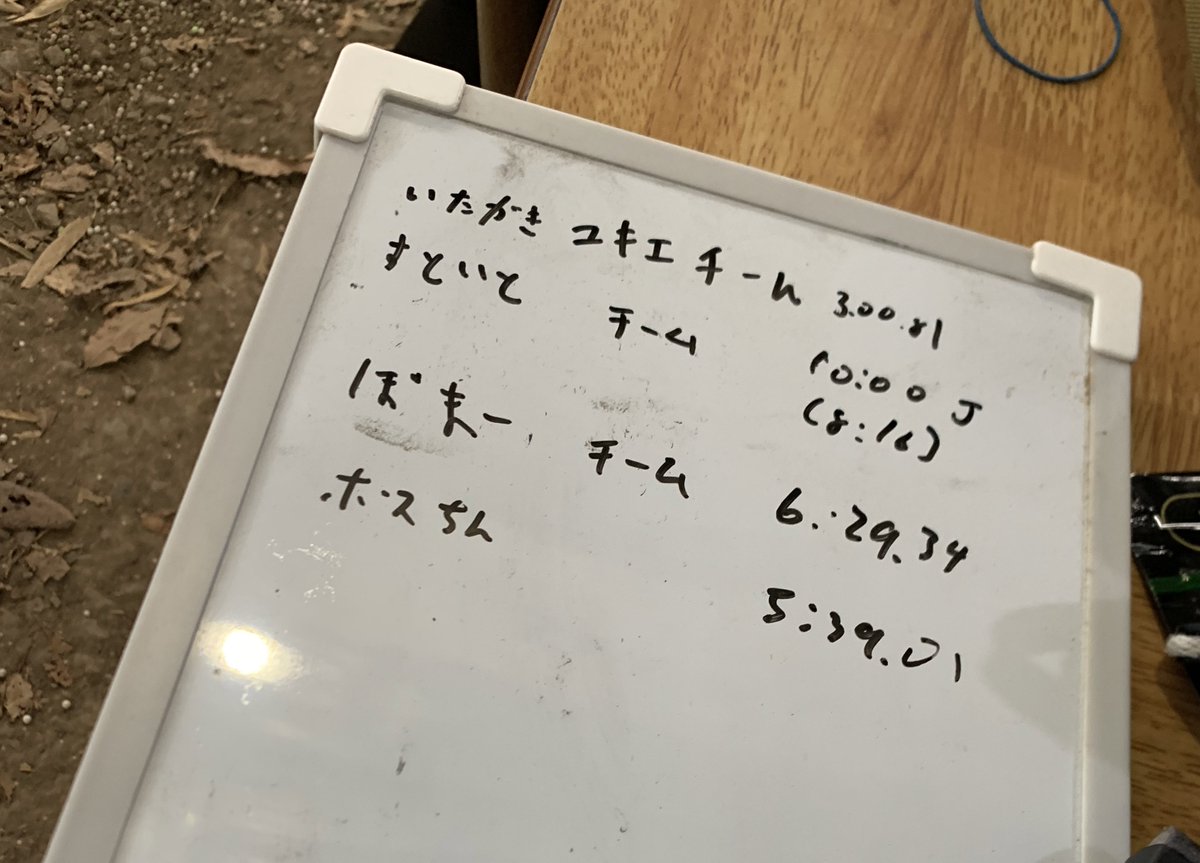 いたがき ユキエ チーム 3.00.81
すといと チーム 10:00 J
(8:16)
ぼまー チーム 6:29.34
ボスちん 5:39.01